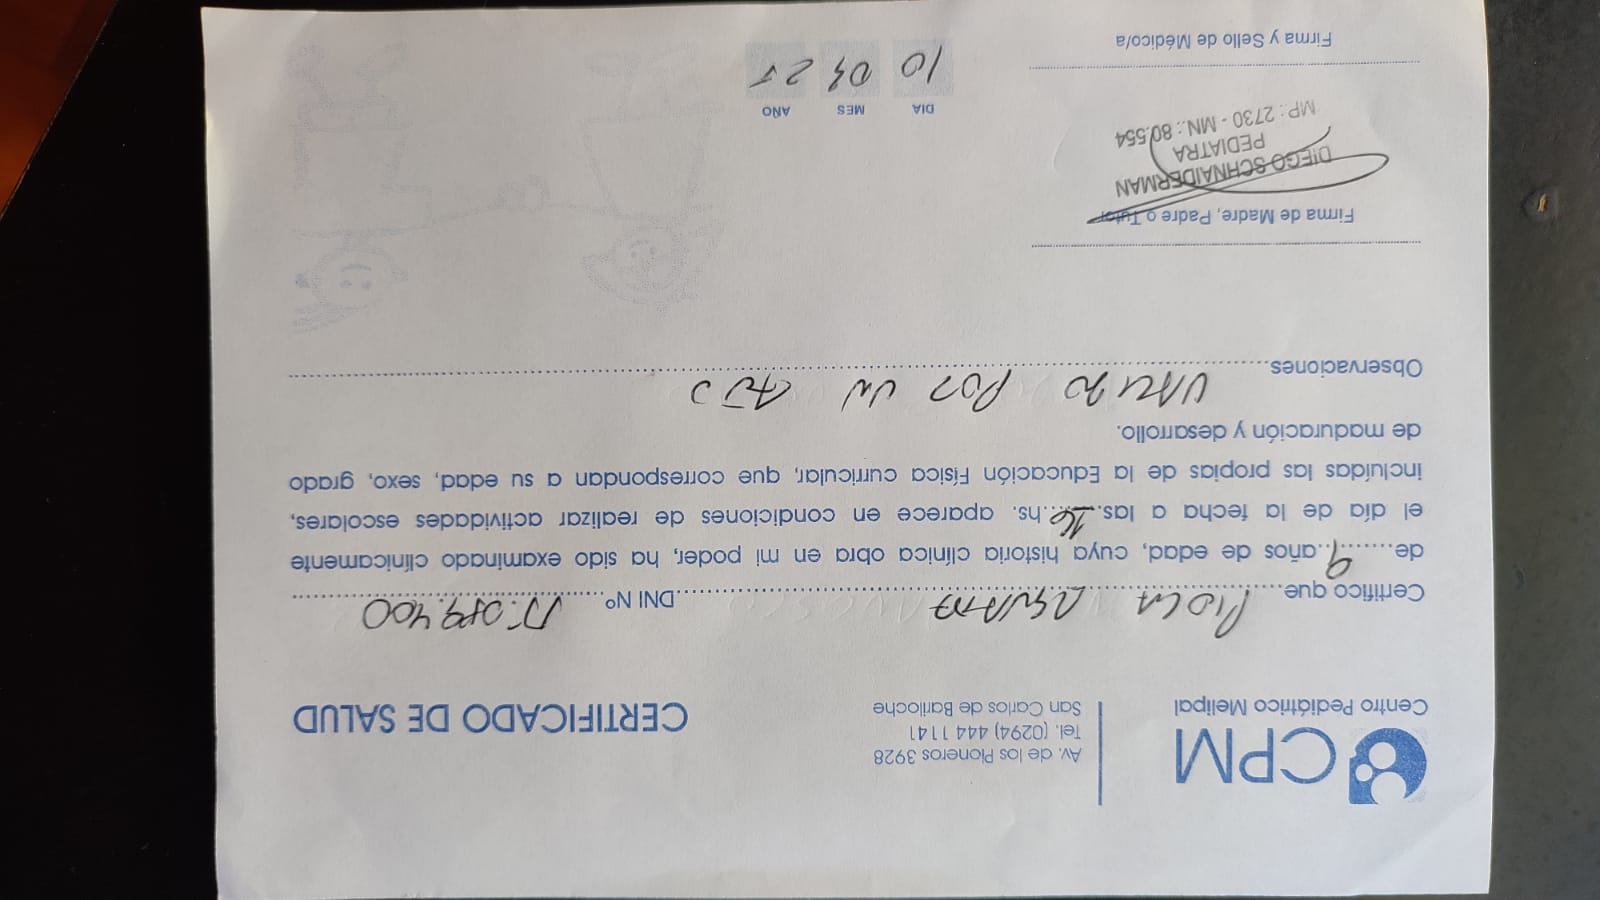 CPM
Centro Pediátrico Melipal
Av. de los Pioneros 3928
Tel. (0294) 444 1141
San Carlos de Bariloche
CERTIFICADO DE SALUD
Certifico que RENATA DNI Nº 55.089.400
de 9 años de edad, cuya historia clínica obra en mi poder, ha sido examinado clínicamente
el día de la fecha a las 16 hs. aparece en condiciones de realizar actividades escolares,
incluídas las propias de la Educación Física curricular, que correspondan a su edad, sexo, grado
de maduración y desarrollo.
Observaciones VALIDO POR UN AÑO
Firma de Madre, Padre o Tutor
DIEGO SCHNAIDERMAN
PEDIATRA
MP.: 2730 - MN.: 80.554
Firma y Sello de Médico/a
DIA MES AÑO
10 25